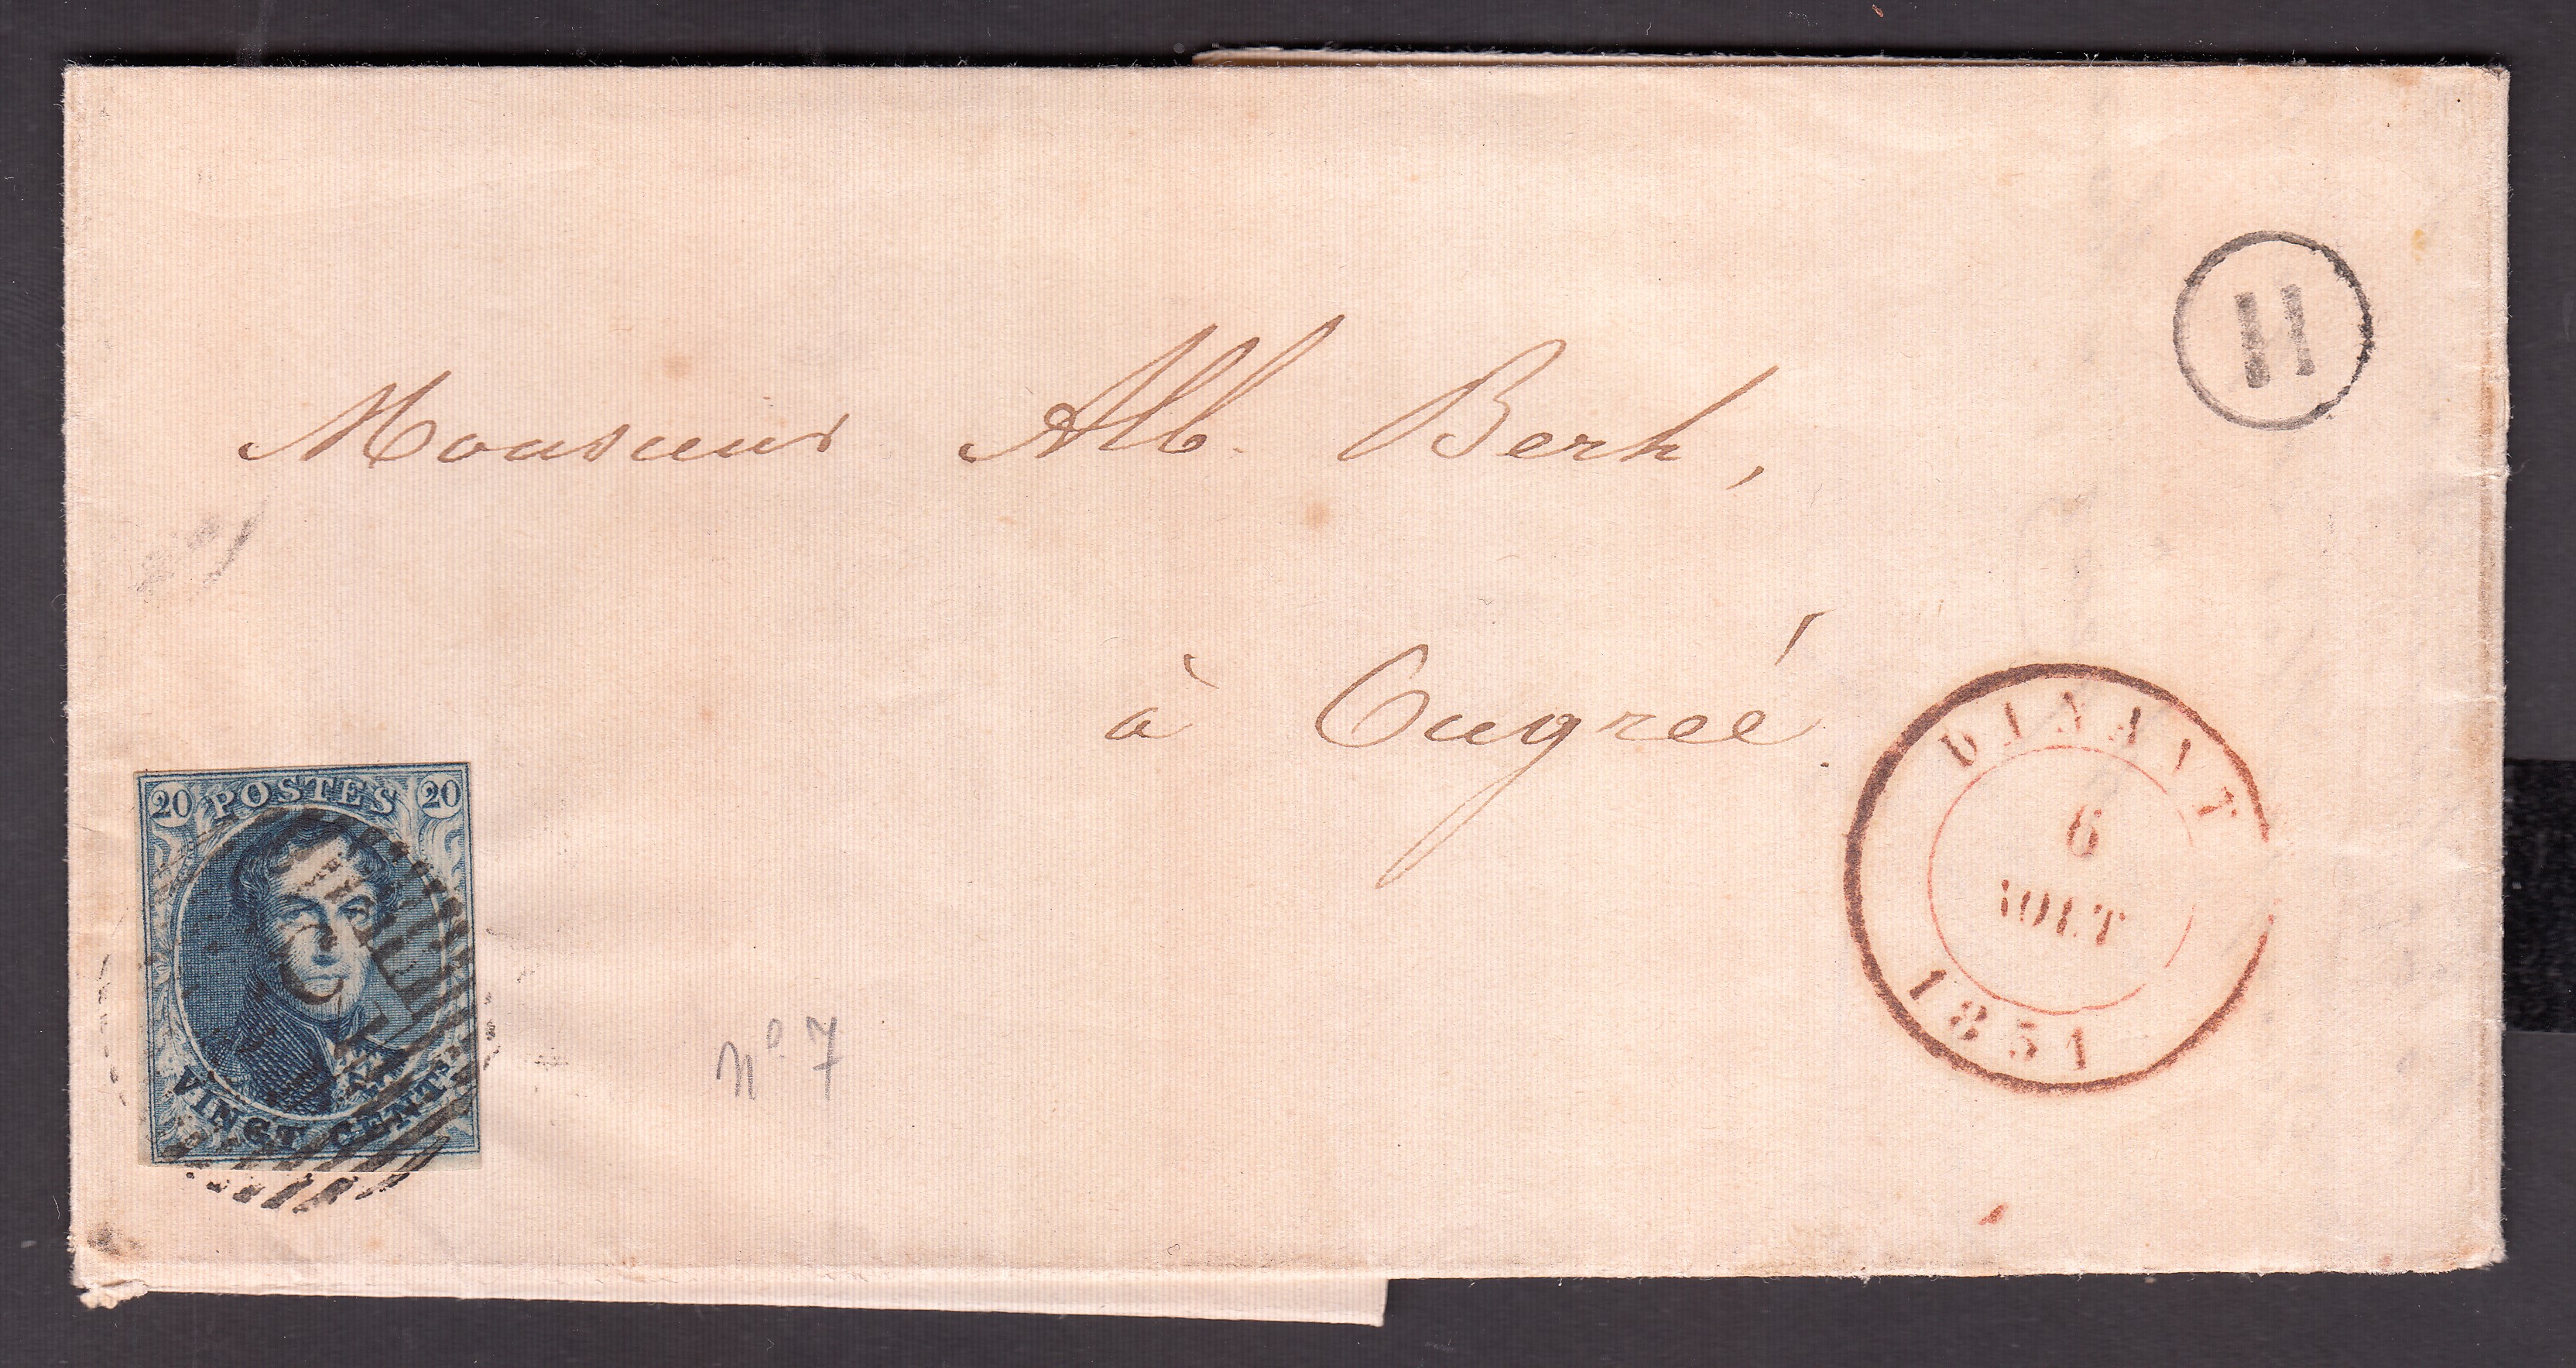 H
Monsieur Alb. Berh,
à Ougrée.
DINANT
6
AOUT
1851
20 POSTES 20
VINGT CENTS
nº 7